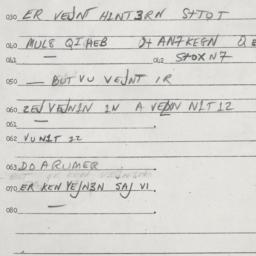 030 ER VEJNT H1NT3RN S+TOT
040 MUL8 QIAEB O+ AN7KEGN Q
041 042 S+OXN7
050 — BUT VU VEJNT IR
060 ZEJ VEJN1N 1N A VEDN N1T 12
061
062 VUN1T 22
063 DO A RUMER
070 ER KEN VEJN3N SAJ VI
080